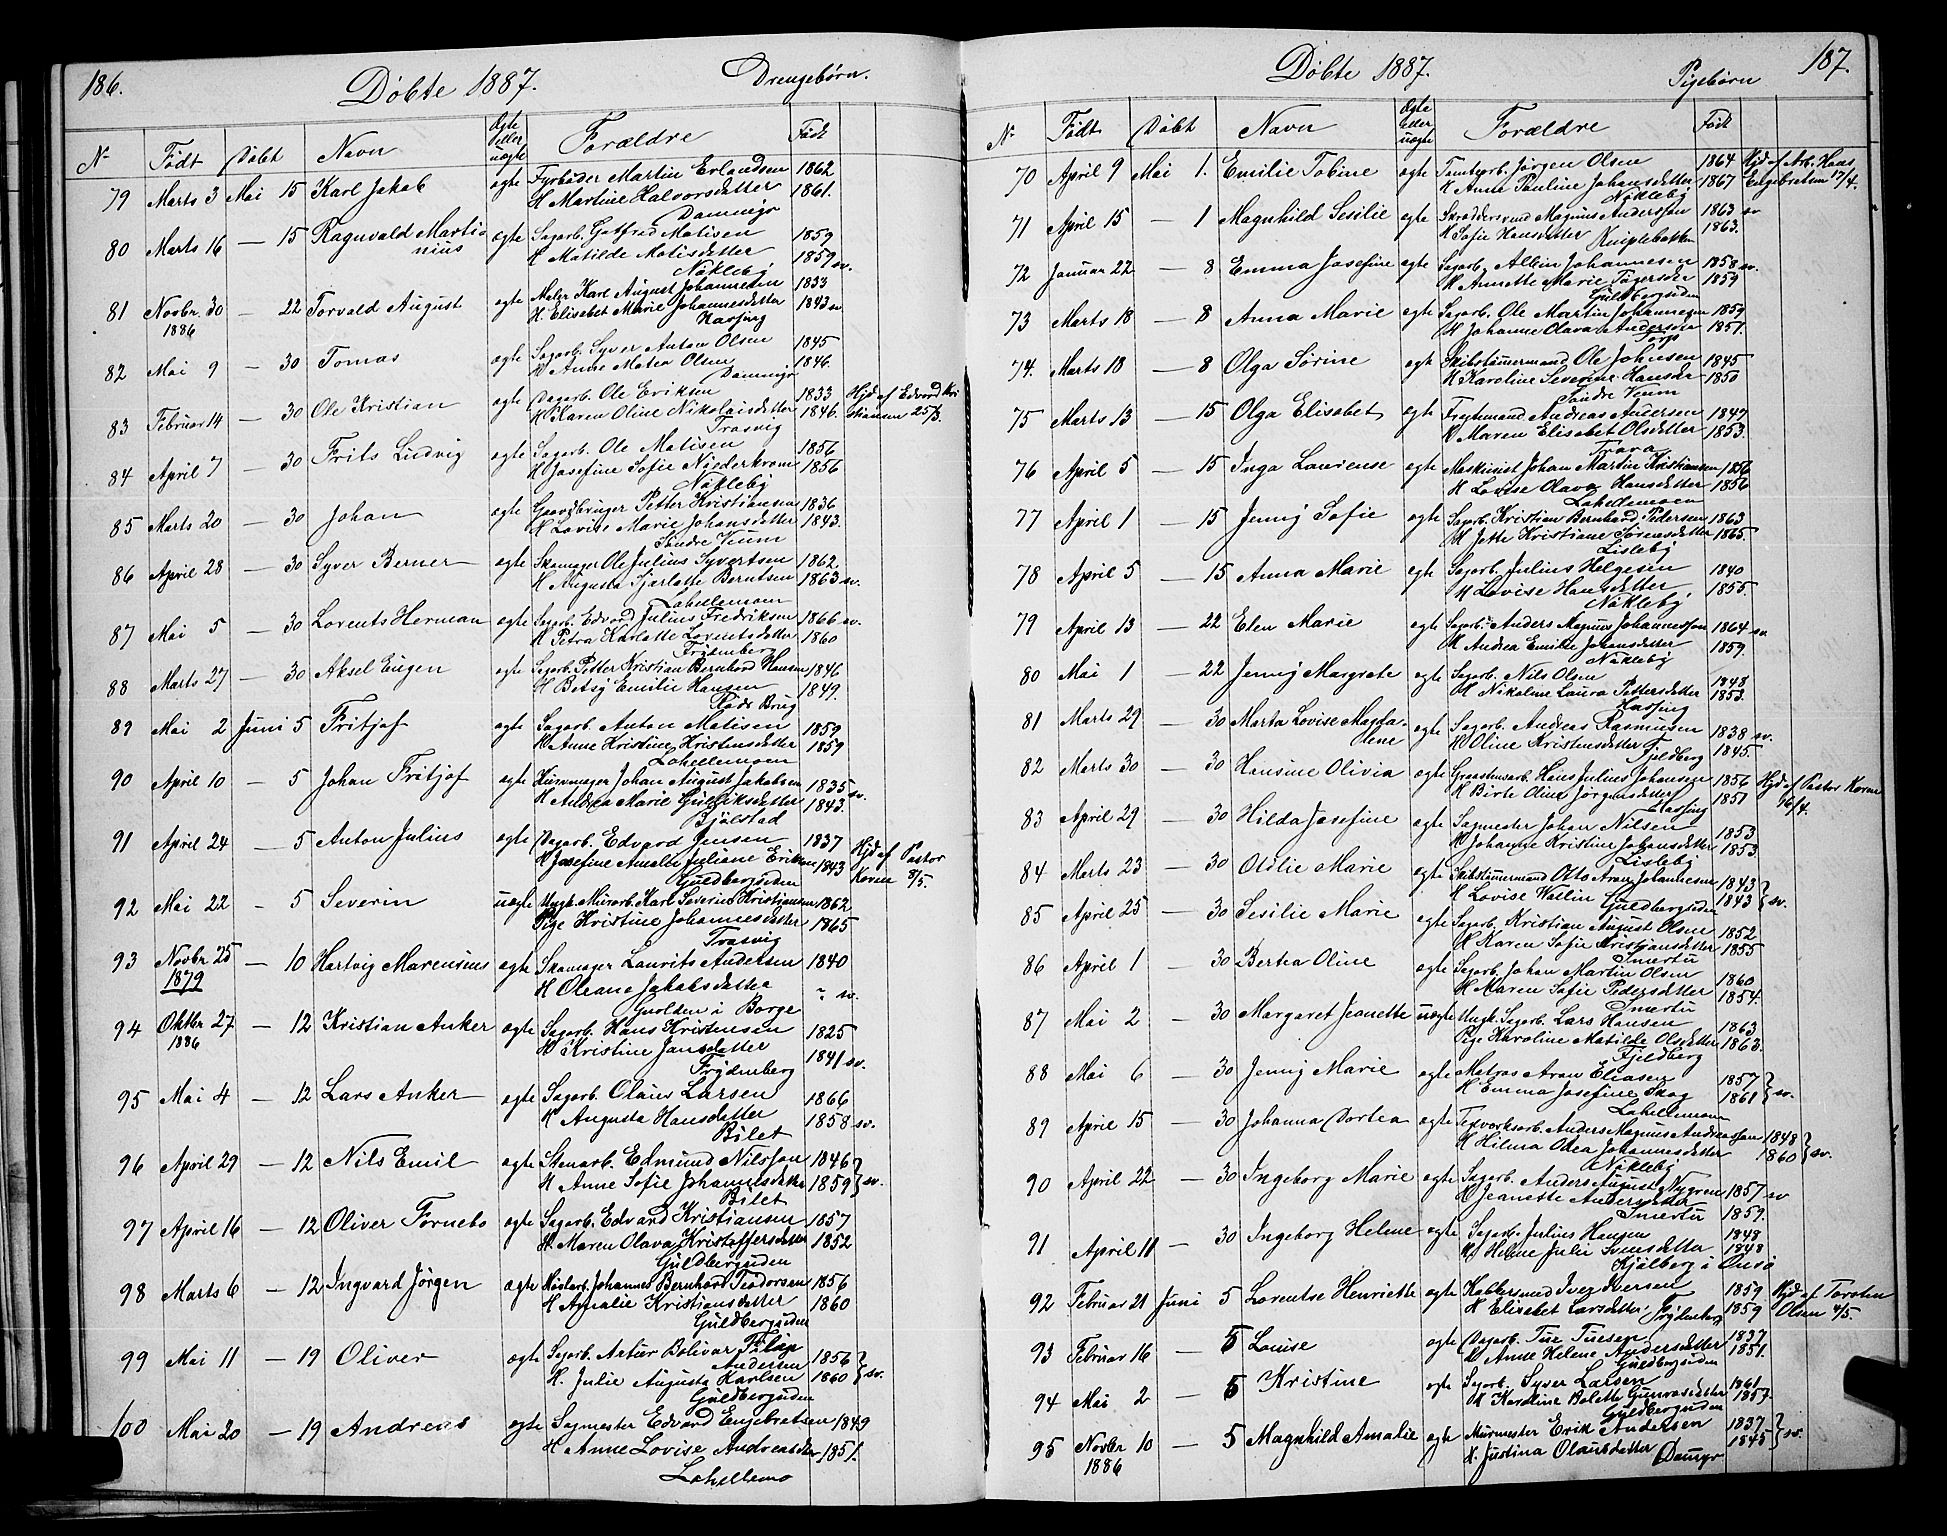 186.
Döbte 1887.
Drengebørn.
Nr Født Døbt Navn Ægte eller uægte Forældre Født
79 Marts 3 Mai 15 Karl Jakob ægte Fyrbøder Martin Erlandsen 1862
H Martine Halvorsdatter 1861.
Damnigr
80 Marts 16 — 15 Ragnvald Martinius ægte Sagarb. Gotfred Matisen 1859
H Matilde Matisdatter 1859 sv.
Nökleby
81 Novbr. 30 1886 — 22 Torvald August ægte Maler Karl August Johannesen 1833
H. Elisabet Marie Johannesdatter 1843 sv
Hassing
82 Mai 9 — 30 Tomas ægte Sagarb. Syver Anton Olsen 1845
H Anne Matea Olsen 1846.
Damnigr
83 Februar 14 — 30 Ole Kristian ægte Dagarb. Ole Eriksen 1833 Hjd af Edvard Kri
H Karen Oline Nikolaisdatter 1846. stiansen 25/3.
Trasvig
84 April 7 — 30 Frits Ludvig ægte Sagarb. Ole Matisen 1856
H Josefine Sofie Niederkrom 1856
Nökleby
85 Marts 20 — 30 Johan ægte Gaardbruger Petter Kristiansen 1836
H Lovise Marie Johansdatter 1843.
Söndre Veum
86 April 28 — 30 Syver Berner ægte Skomager Ole Julius Syvertsen 1862.
H Augusta Sjarlotte Berntsen 1863 sv.
Lahellemoen
87 Mai 5 — 30 Lorents Herman ægte Sagarb. Edvard Julius Fredriksen 1866 sv.
H Petra Karlotte Lorentsdatter 1860
Frydenberg
88 Marts 27 — 30 Aksel Eugen ægte Sagarb. Petter Kristian Bernhard Hansen 1846
H Betsy Emilie Hansen 1849.
Röds Brug
89 Mai 2 Juni 5 Fritjof ægte Sagarb. Anton Matisen 1859
H Anne Kristine Kristensdatter 1859
Lahellemoen
90 April 10 — 5 Johan Fritjof ægte Kurvmager Johan August Jakobsen 1835 sv.
H Andrea Marie Gulliksdatter 1843.
Bjölstad
91 April 24 — 5 Anton Julius ægte Dagarb. Edvard Jensen 1837 Hjd af Pastor
H Josefine Amalie Juliane Eriksen 1843 Koren 8/5.
Guldbergsiden
92 Mai 22 — 5 Severin uægte Ungk. Murarb. Karl Severin Kristiansen 1862
Pige Kristine Johannesdatter 1865
Trasvig
93 Novbr 25 1879 — 10 Hartvig Marensius ægte Skomager Laurits Andersen 1840
H Oleane Jakobsdatter " sv.
Gudden i Borge
94 Oktbr 27 1886 — 12 Kristian Anker ægte Sagarb. Hans Kristensen 1825
H Kristine Jansdatter 1841 sv.
Frydenberg
95 Mai 4 — 12 Lars Anker ægte Sagarb. Olaus Larsen 1866
H Augusta Hansdatter 1858 sv.
Bilet
96 April 29 — 12 Nils Emil ægte Stenarb. Edmund Nilsson 1846
H Anne Sofie Johannesdatter 1859 } sv.
Bilet
97 April 16 — 12 Oliver Fornebo ægte Sagarb. Edvard Kristiansen 1857
H Maren Olava Kristoffersdatter 1852
Guldbergsiden
98 Marts 6 — 12 Ingvard Jörgen ægte Hövlarb. Johannes Bernhard Teodorsen 1856
H Amalie Kristiansdatter 1860
Guldbergsiden
99 Mai 11 — 19 Oliver ægte Sagarb. Artur Bolivar Filip
Andersen 1856
H. Julie Augusta Karlsen 1860 } sv.
Guldbergsiden
100 Mai 20 — 19 Andreas ægte Sagmester Edvard Engebretsen 1849
H Anne Lovise Andreasdatter 1851.
Lahellemo
187.
Döbte 1887.
Pigebørn
Nr Født Døbt Navn Ægte Eller uægte Forældre Født
70 April 9 Mai 1. Emilie Tobine ægte Tomtearb. Jörgen Olsen 1864 Hjd af Arb. Hans
H Anna Pauline Johansdatter 1867 Engebretsen 17/4.
Nökleby
71 April 15 — 1 Magnhild Sesilie ægte Skræddersvend Magnus Andersson 1863 sv
H Sofie Hansdatter Kniplebakken 1863.
72 Januar 22 — 8 Emma Josefine ægte Sagarb. Albin Johannesen 1858 sv.
H Annette Marie Tågersdr 1859
Guldbergsiden
73 Marts 18 — 8 Anna Marie ægte Sagarb. Ole Martin Johannesen 1859
H Johanne Olava Andersdr 1851.
Torp
74. Marts 18 — 8 Olga Sörine ægte Skibstömmermand Ole Johnsen 1845
H Karoline Severine Hansdr 1850
Söndre Veum
75 Marts 13 — 15 Olga Elisabet ægte Fragtemand Andreas Andersen 1847
H Maren Elisabet Olsdatter 1853.
Trara
76 April 5 — 15 Inga Laurense ægte Maskinist Johan Martin Kristiansen 1856
H Lovise Olava Hansdatter 1856
Lahellemoen
77 April 1 — 15 Jenny Sofie ægte Sagarb. Kristian Bernhard Pedersen 1863
H Jette Kristiane Sörensdatter 1865.
Lisleby
78 April 5 — 15 Anna Marie ægte Sagarb. Julius Helgesen 1840
H Lovise Hansdatter 1855.
Nökleby
79 April 13 — 22 Elen Marie ægte Sagarb. Anders Magnus Johannesson 1864 sv
H Andrea Emilie Johansdatter 1859.
Nökleby
80 Mai 1 — 22 Jenny Margrete ægte Sagarb. Nils Olsen 1848
H Nikoline Laura Pettersdatter 1853.
Hassing
81 Marts 29 — 30 Marta Lovise Magdalene ægte Sagarb. Andreas Rasmussen 1838 sv.
H Oline Kristensdatter Fjeldberg 1845.
82 Marts 30 — 30 Hansine Olivia ægte Graastensarb. Hans Julius Johansen 1856 Hjd af Pastor Koren
H Birte Oline Jörgensdatter 1851 16/4.
Hassing
83 April 29 — 30 Hilda Josefine ægte Sagmester Johan Nilsen 1853
H Johanne Kristine Johansdatter 1853
Lisleby
84 Marts 23 — 30 Otilie Marie ægte Skibstömmermand Otto Aron Johannesen 1843
H Lovise Wallin Guldbergsiden 1843 } sv.
85 April 25 — 30 Sesilie Marie ægte Sagarb. Kristian August Olsen 1852
H Karen Sofie Kristiansdatter 1855
Smertu
86 April 1 — 30 Bertea Oline ægte Sagarb. Johan Martin Olsen 1860
H Maren Sofie Pedersdatter 1854.
Smertu
87 Mai 2 — 30 Margaret Jeanette uægte Ungk. Sagarb. Lars Hansen 1863
Pige Karoline Matilde Olsdatter 1863.
Fjeldberg
88 Mai 6 — 30 Jenny Marie ægte Matros Aron Eliasen 1857
H Emma Josefine Skog 1861 } sv.
Lahellemoen
89 April 15 — 30 Johanna Dortea ægte Teglværksarb. Anders Magnus Andreasson 1848
H Hilma Odea Johannesdatter 1860 } sv.
Nökleby
90 April 22 — 30 Ingeborg Marie ægte Sagarb. Anders August Nygren 1857 sv
H Jeanette Andersdatter 1859.
Smertu
91 April 11 — 30 Ingeborg Helene ægte Sagarb. Julius Hansen 1848
H Helene Julie Svensdatter 1848
Kjölberg i Onsö
92 Februar 21 Juni 5 Lorentse Henriette ægte Koblermand Iver Iversen 1859 Hjd af Torsten
H Elisabet Larsdatter, Frydenberg 1859 Olsen 4/5.
93 Februar 16 — 5 Louise ægte Dagarb. Tue Tuesen 1837
H Anne Helene Andersdatter 1851.
Guldbergsiden
94 Mai 2 — 5 Kristine ægte Sagarb. Syver Larsen 1861
H Karoline Bolette Gunvasdatter 1857.
Guldbergsiden
95 Novbr 10 1886 — 5 Magnhild Amalie ægte Murmester Erik Andersen 1837
H. Justina Olausdatter 1845 } sv.
Damgr